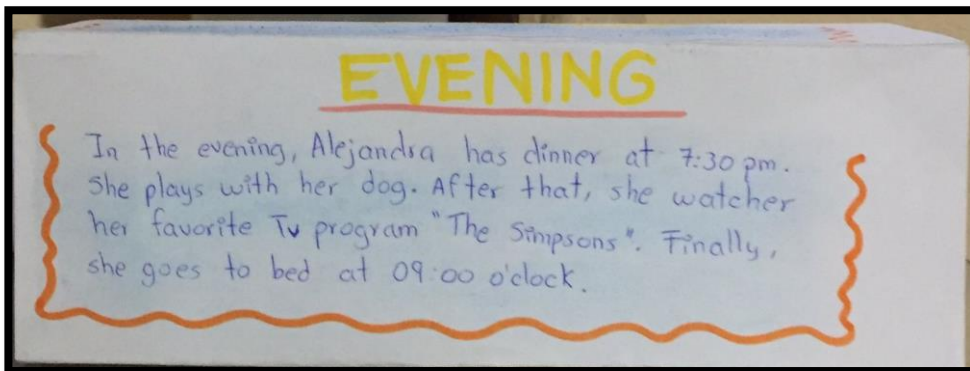 EVENING
In the evening, Alejandra has dinner at 7:30 pm.
She plays with her dog. After that, she watcher
her favorite Tv program "The Simpsons". Finally,
she goes to bed at 09:00 o'clock.